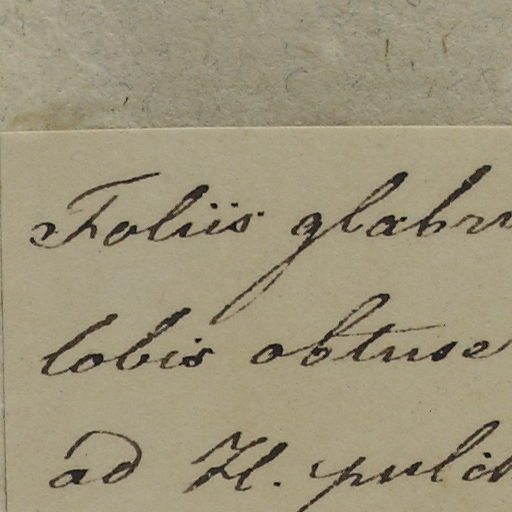 Foliis glabr
lobis obtuse
ad H. pulch